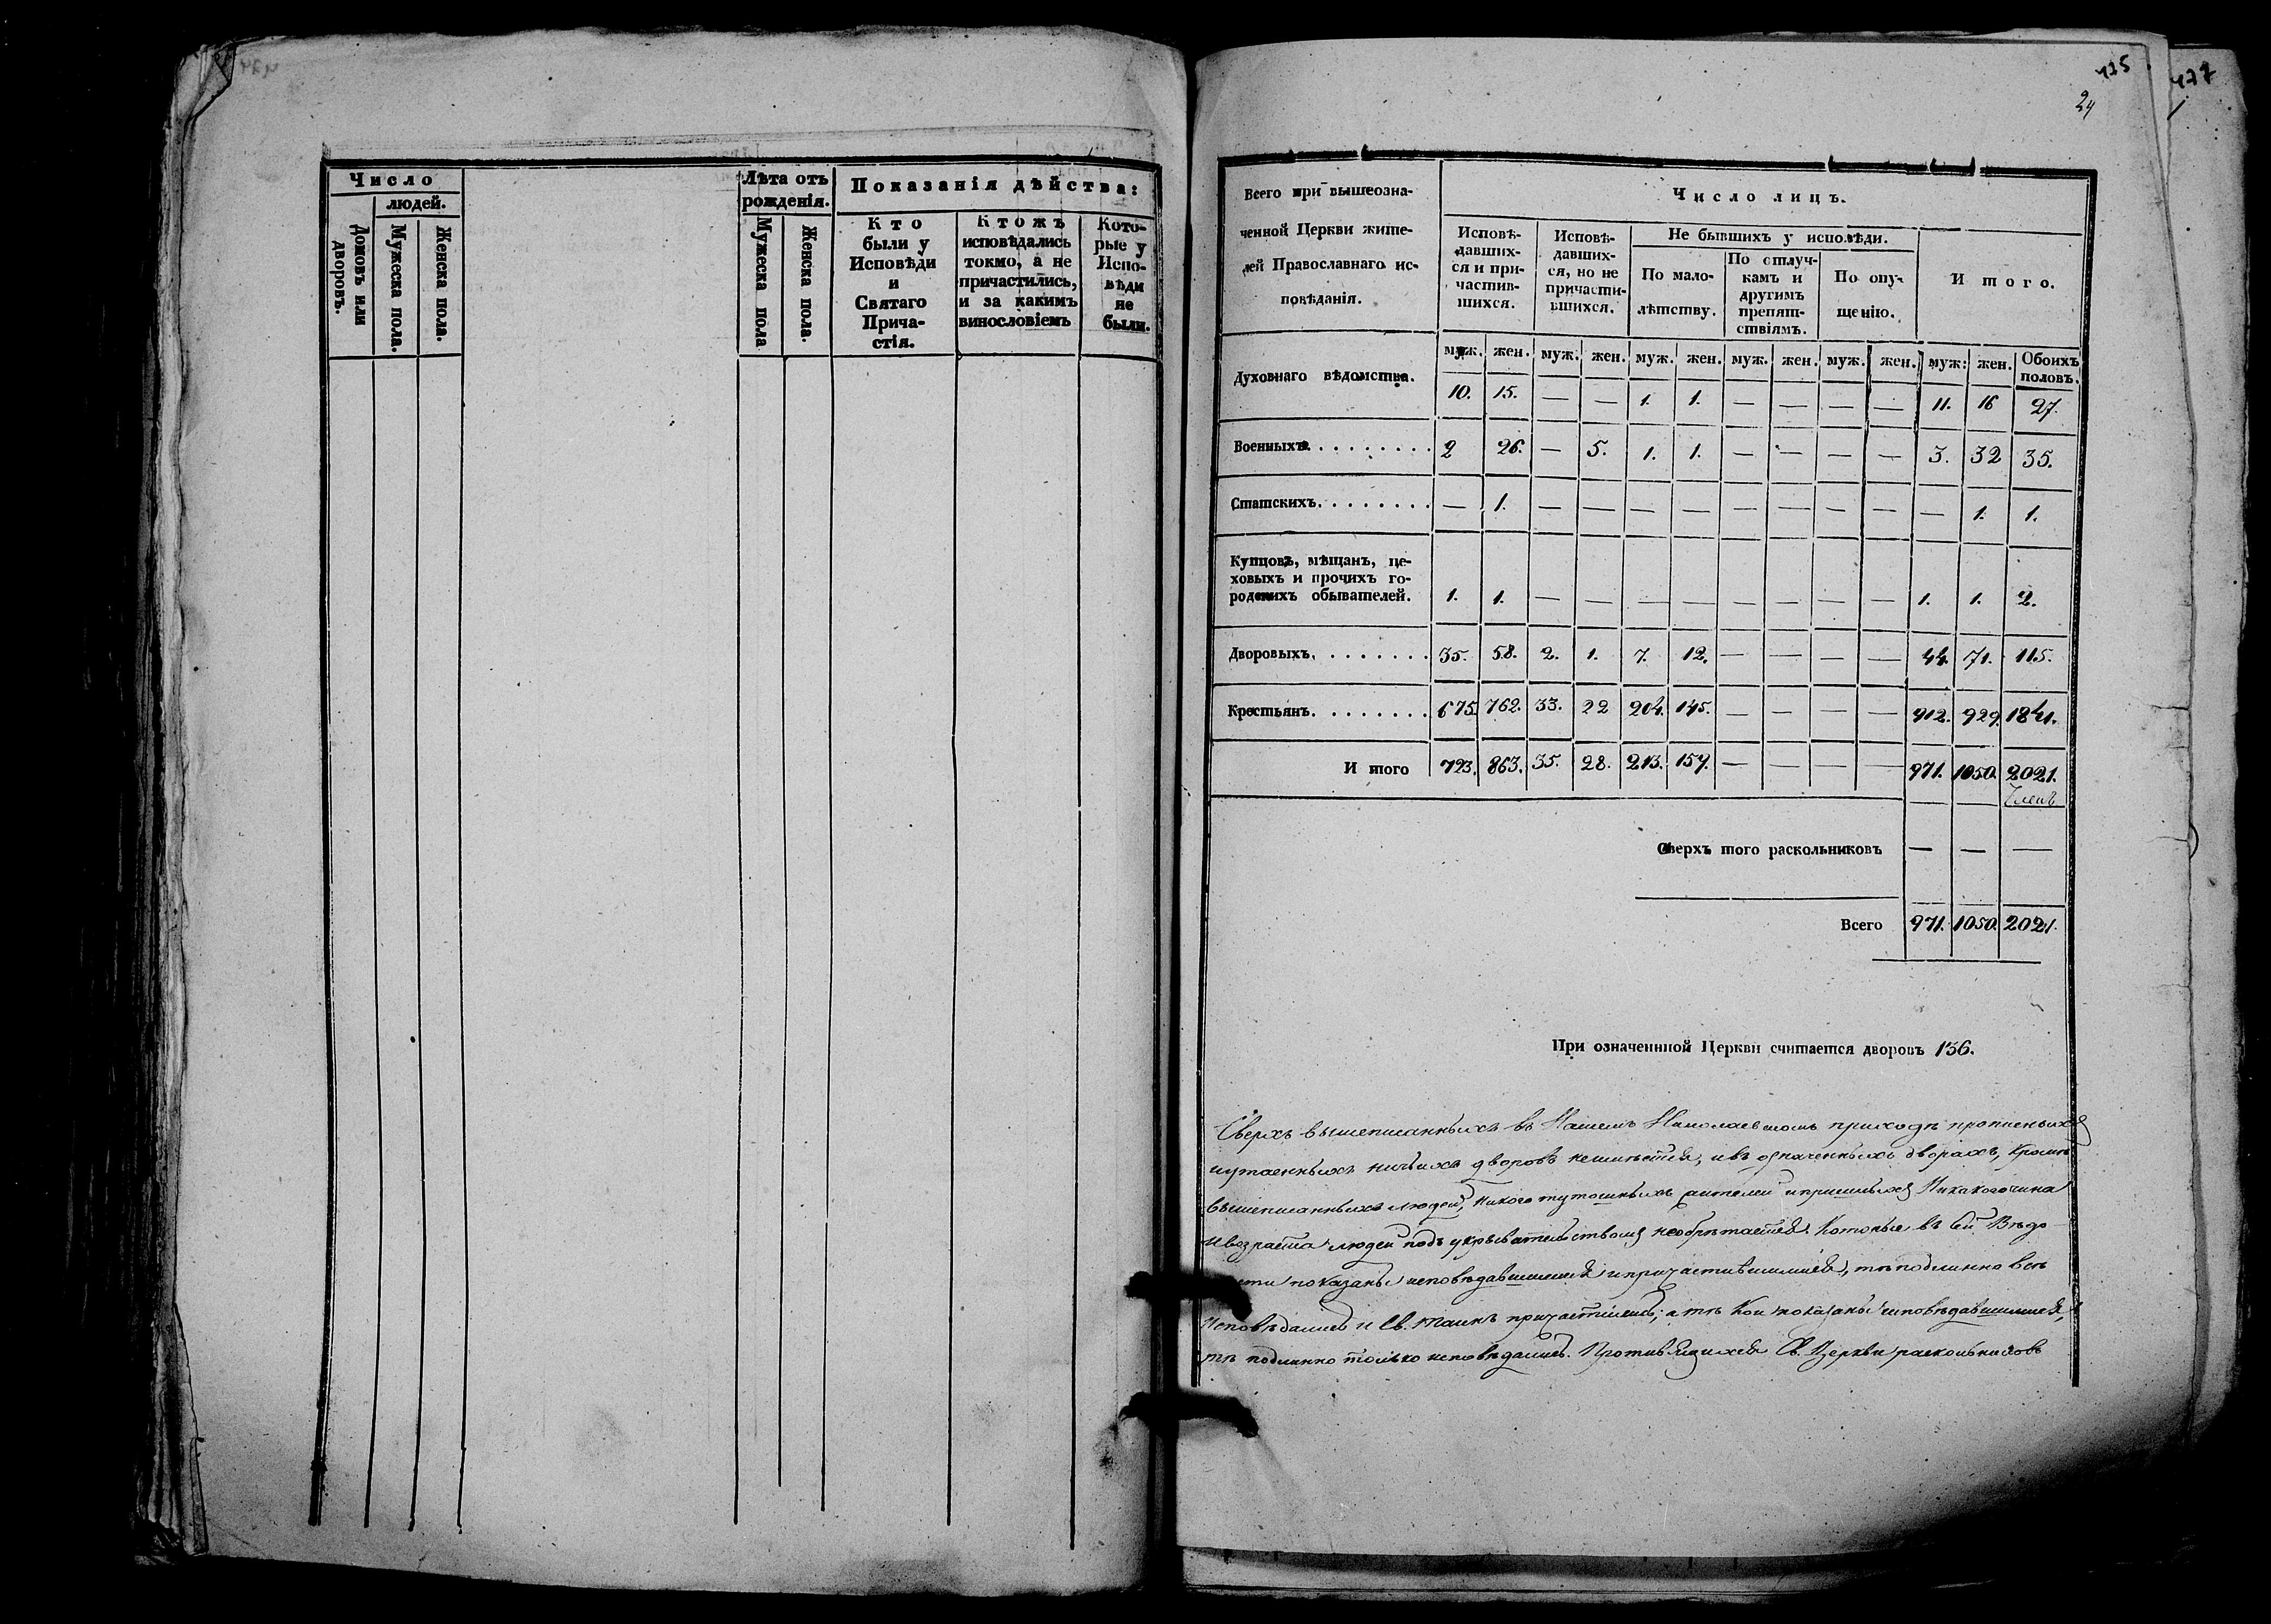 Число
людей.
Домовъ или дворовъ.
Мужеска пола.
Женска пола.
Лѣта отъ рожденія.
Мужеска пола
Женска пола.
Показанія дѣйства:
Кто
были у
Исповѣди
и
Святаго
Прича-
стія.
Ктожъ
исповѣдались
токмо, а не
причастились,
и за какимъ
винословіемъ
Кото-
рые у
Испо-
вѣди
не
были.
425
427
24
1
Всего при вышеозна-
ченной Церкви жите-
лей Православнаго ис-
повѣданія.
Число лицъ.
Исповѣ-
давших-
ся и при-
частив-
шихся.
Исповѣ-
давших-
ся, но не
причасти-
вшихся.
Не бывшихъ у исповѣди.
По мало-
лѣтству.
По отлуч-
камъ и
другимъ
препят-
ствіямъ.
По опу-
щенію.
Итого.
муж. жен. муж. жен. муж. жен. муж. жен. муж. жен. муж: жен. Обоихъ половъ.
Духовнаго вѣдомства. 10. 15. — — 1. 1. — — — — 11. 16 27.
Военныхъ. . . . . . . . . 2 26. — 5. 1. 1. — — — — 3. 32 35.
Статскихъ. . . . . . . . — 1. — — — — — — — — — 1. 1.
Купцовъ, мѣщанъ, це-
ховыхъ и прочихъ го-
родскихъ обывателей. 1. 1. — — — — — — — — 1. 1. 2.
Дворовыхъ. . . . . . . . 35. 58. 2. 1. 7. 12. — — — — 44. 71. 115.
Крестьянъ. . . . . . . . 675. 762. 33. 22 204. 145. — — — — 912. 929. 1841.
И того 723. 863. 35. 28. 213. 159. — — — — 971. 1050. 2021.
— —
Сверхъ того раскольниковъ — — —
Всего 971. 1050. 2021.
При означеннной Церкви считается дворовъ 136.
Сверхъ вышеписанныхъ въ Нашемъ Николаевскомъ приходѣ пропсныхъ
иутаенныхъ ничьихъ дворовъ неимѣется, ивъ означенныхъ дворахъ, кромѣ
вышеписанныхъ людей, никого тутошнихъ жителей ипришлыхъ Никакого чина
ивозраста людей подъ укрывательствомъ необрѣтается. Которые въ сей Вѣдо
мости показаны исповѣдавшимися ипричастившимися, тѣ подлинно всѣ
Исповѣдались и Св. таинъ причастились; а тѣ Кои показаны исповѣдавшимися,
тѣ подлинно только исповѣдались. Противящихся Св. Церкви раскольниковъ